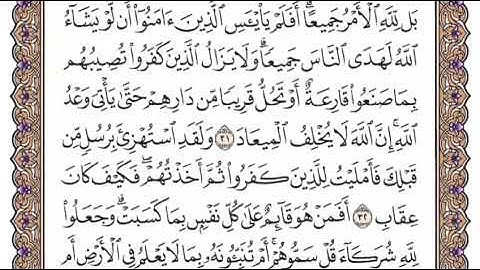 بَل لِّلَّهِ ٱلْأَمْرُ جَمِيعًاۗ أَفَلَمْ يَاْيْـَٔسِ ٱلَّذِينَ ءَامَنُوٓاْ أَن لَّوْ يَشَآءُ
ٱللَّهُ لَهَدَى ٱلنَّاسَ جَمِيعًاۗ وَلَا يَزَالُ ٱلَّذِينَ كَفَرُواْ تُصِيبُهُم
بِمَا صَنَعُواْ قَارِعَةٌ أَوْ تَحُلُّ قَرِيبًا مِّن دَارِهِمْ حَتَّىٰ يَأْتِيَ وَعْدُ
ٱللَّهِۚ إِنَّ ٱللَّهَ لَا يُخْلِفُ ٱلْمِيعَادَ ٣١ وَلَقَدِ ٱسْتُهْزِئَ بِرُسُلٍ مِّن
قَبْلِكَ فَأَمْلَيْتُ لِلَّذِينَ كَفَرُواْ ثُمَّ أَخَذْتُهُمْۖ فَكَيْفَ كَانَ
عِقَابِ ٣٢ أَفَمَنْ هُوَ قَآئِمٌ عَلَىٰ كُلِّ نَفْسٍۭ بِمَا كَسَبَتْۗ وَجَعَلُواْ
لِلَّهِ شُرَكَآءَ قُلْ سَمُّوهُمْۚ أَمْ تُنَبِّـُٔونَهُۥ بِمَا لَا يَعْلَمُ فِي ٱلْأَرْضِ أَم